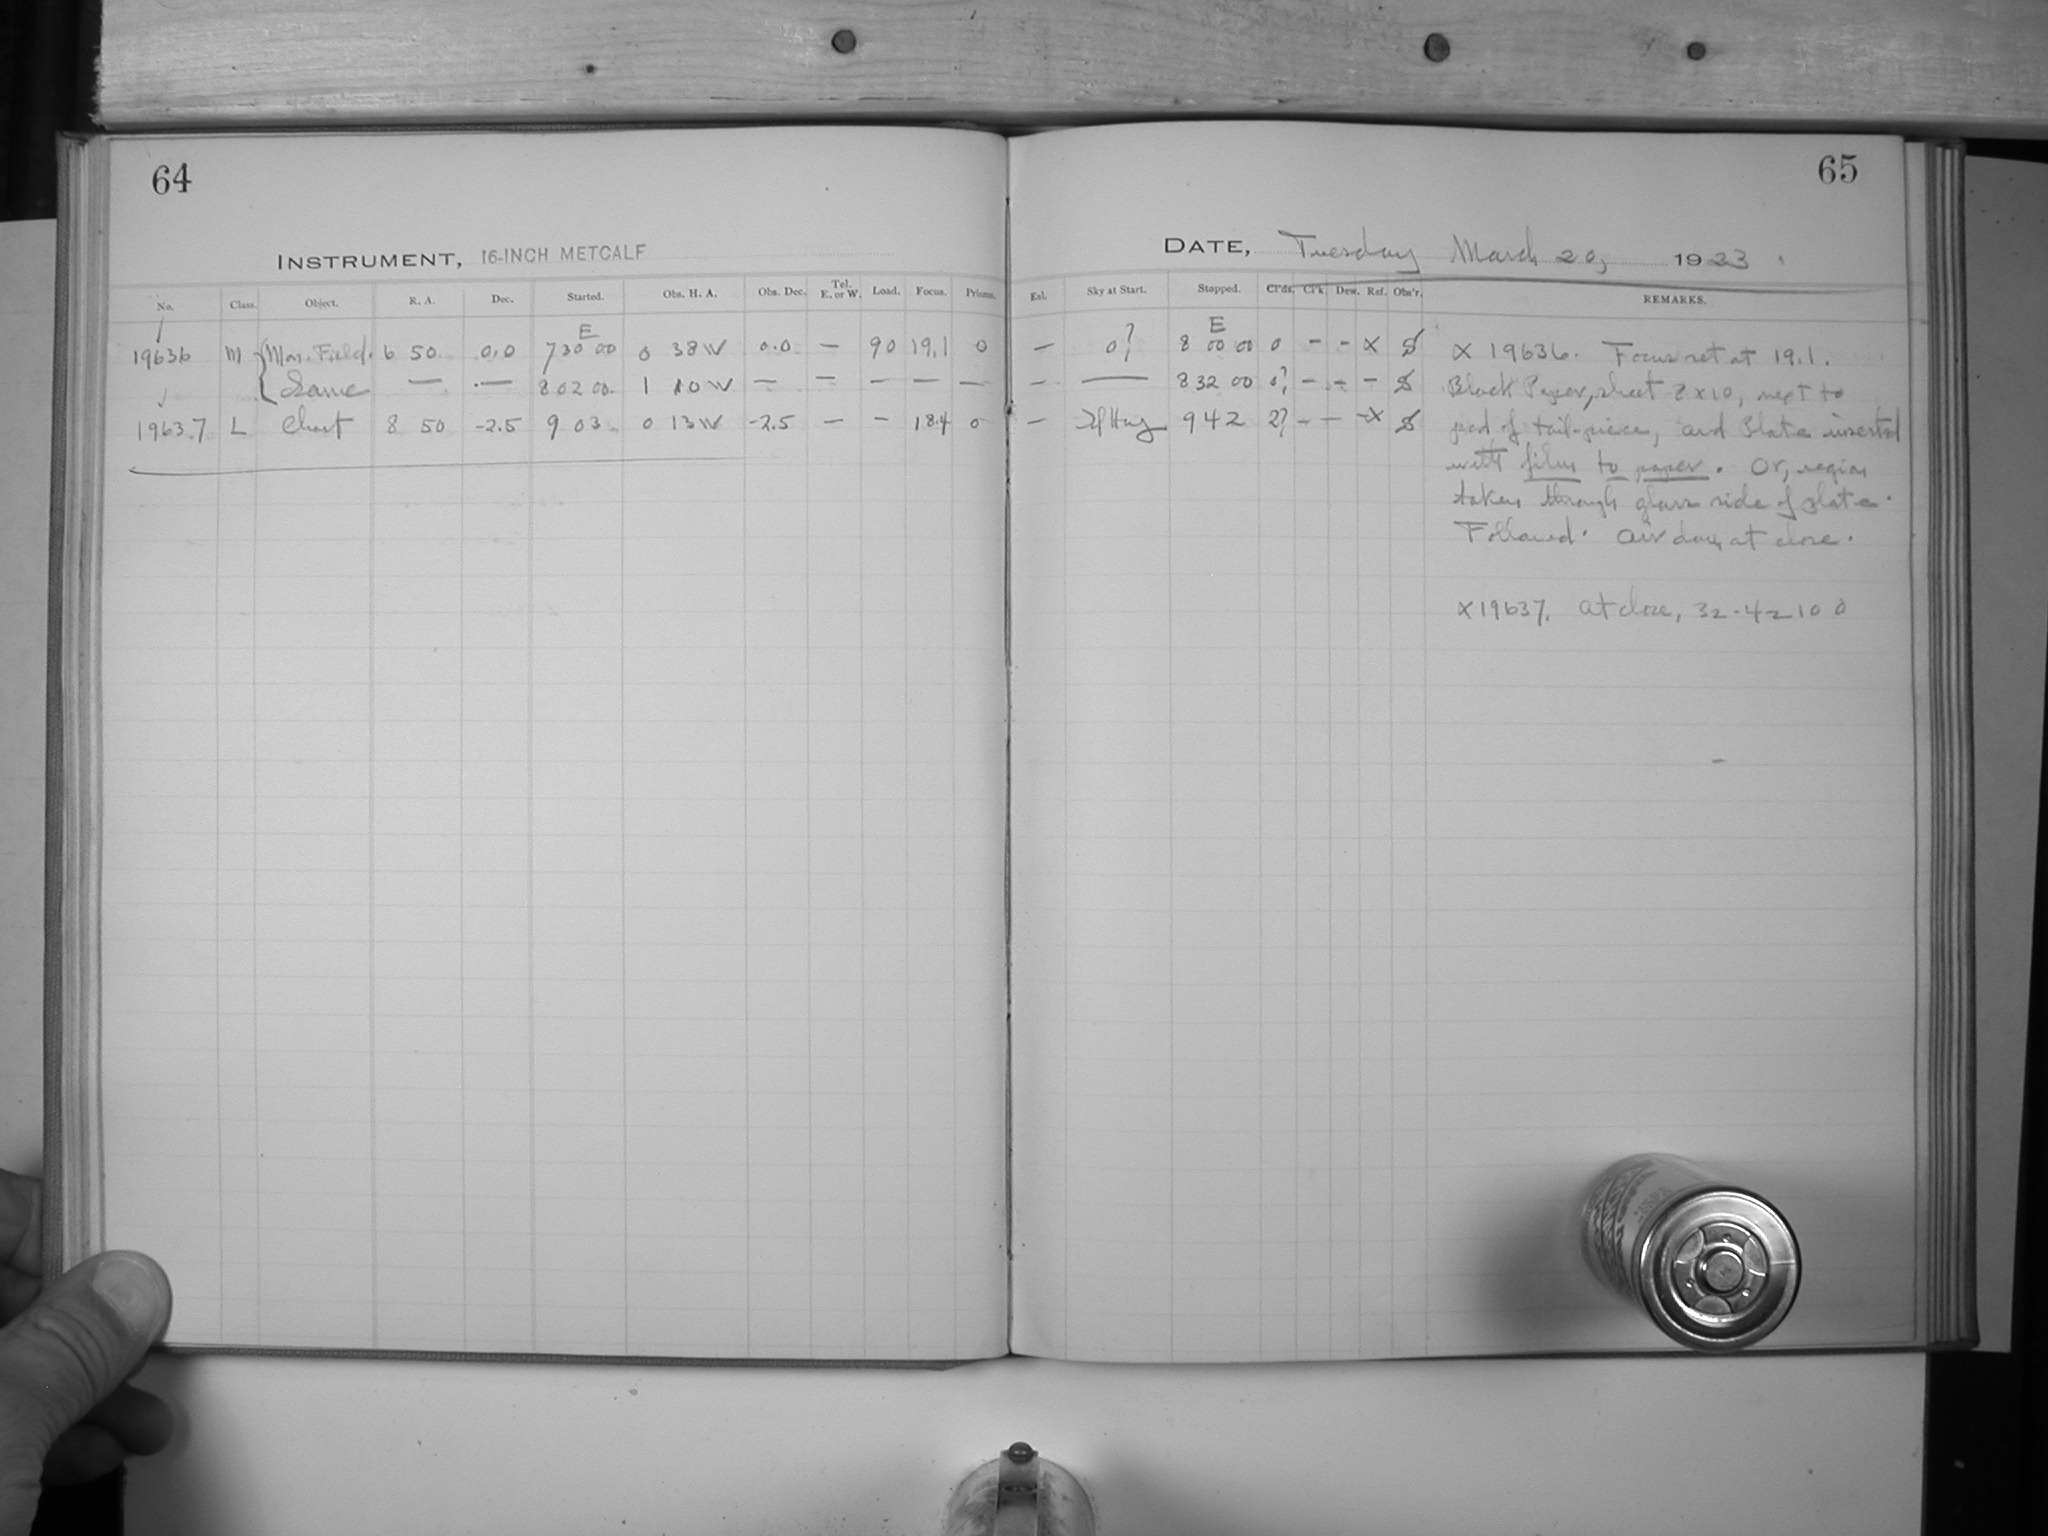 64
INSTRUMENT, 16-INCH METCALF
No. Class. Object. R. A. Dec. Started. Obs. H. A. Obs. Dec. Tel. E. or W. Load. Focus. Prisms.
E
19636 M Mon. Field. 6 50. 0.0 7 30 00 0 38 W 0.0 — 90 19.1 0
Same — — 8 02 00. 1 10 W — — — — —
19637 L Chart 8 50 -2.5 9 03. 0 13 W -2.5 — — 18.4 0
65
DATE, Tuesday March 20, 1923
Eal. Sky at Start. Stopped. Cl'ds. Cl'k. Dew. Ref. Obs'r. REMARKS.
E
— 0? 8 00 00 0 - - X S
— — 8 32 00 0? - - - S
— 9 42 2? - - -X S
X 19636. Focus set at 19.1.
Black Paper, sheet 8 x 10, next to
pad of tail-piece, and Plate inserted
with film to paper. Or, region
taken through glass side of plate.
Followed. at close.
X 19637. At close, 32-42 10 0